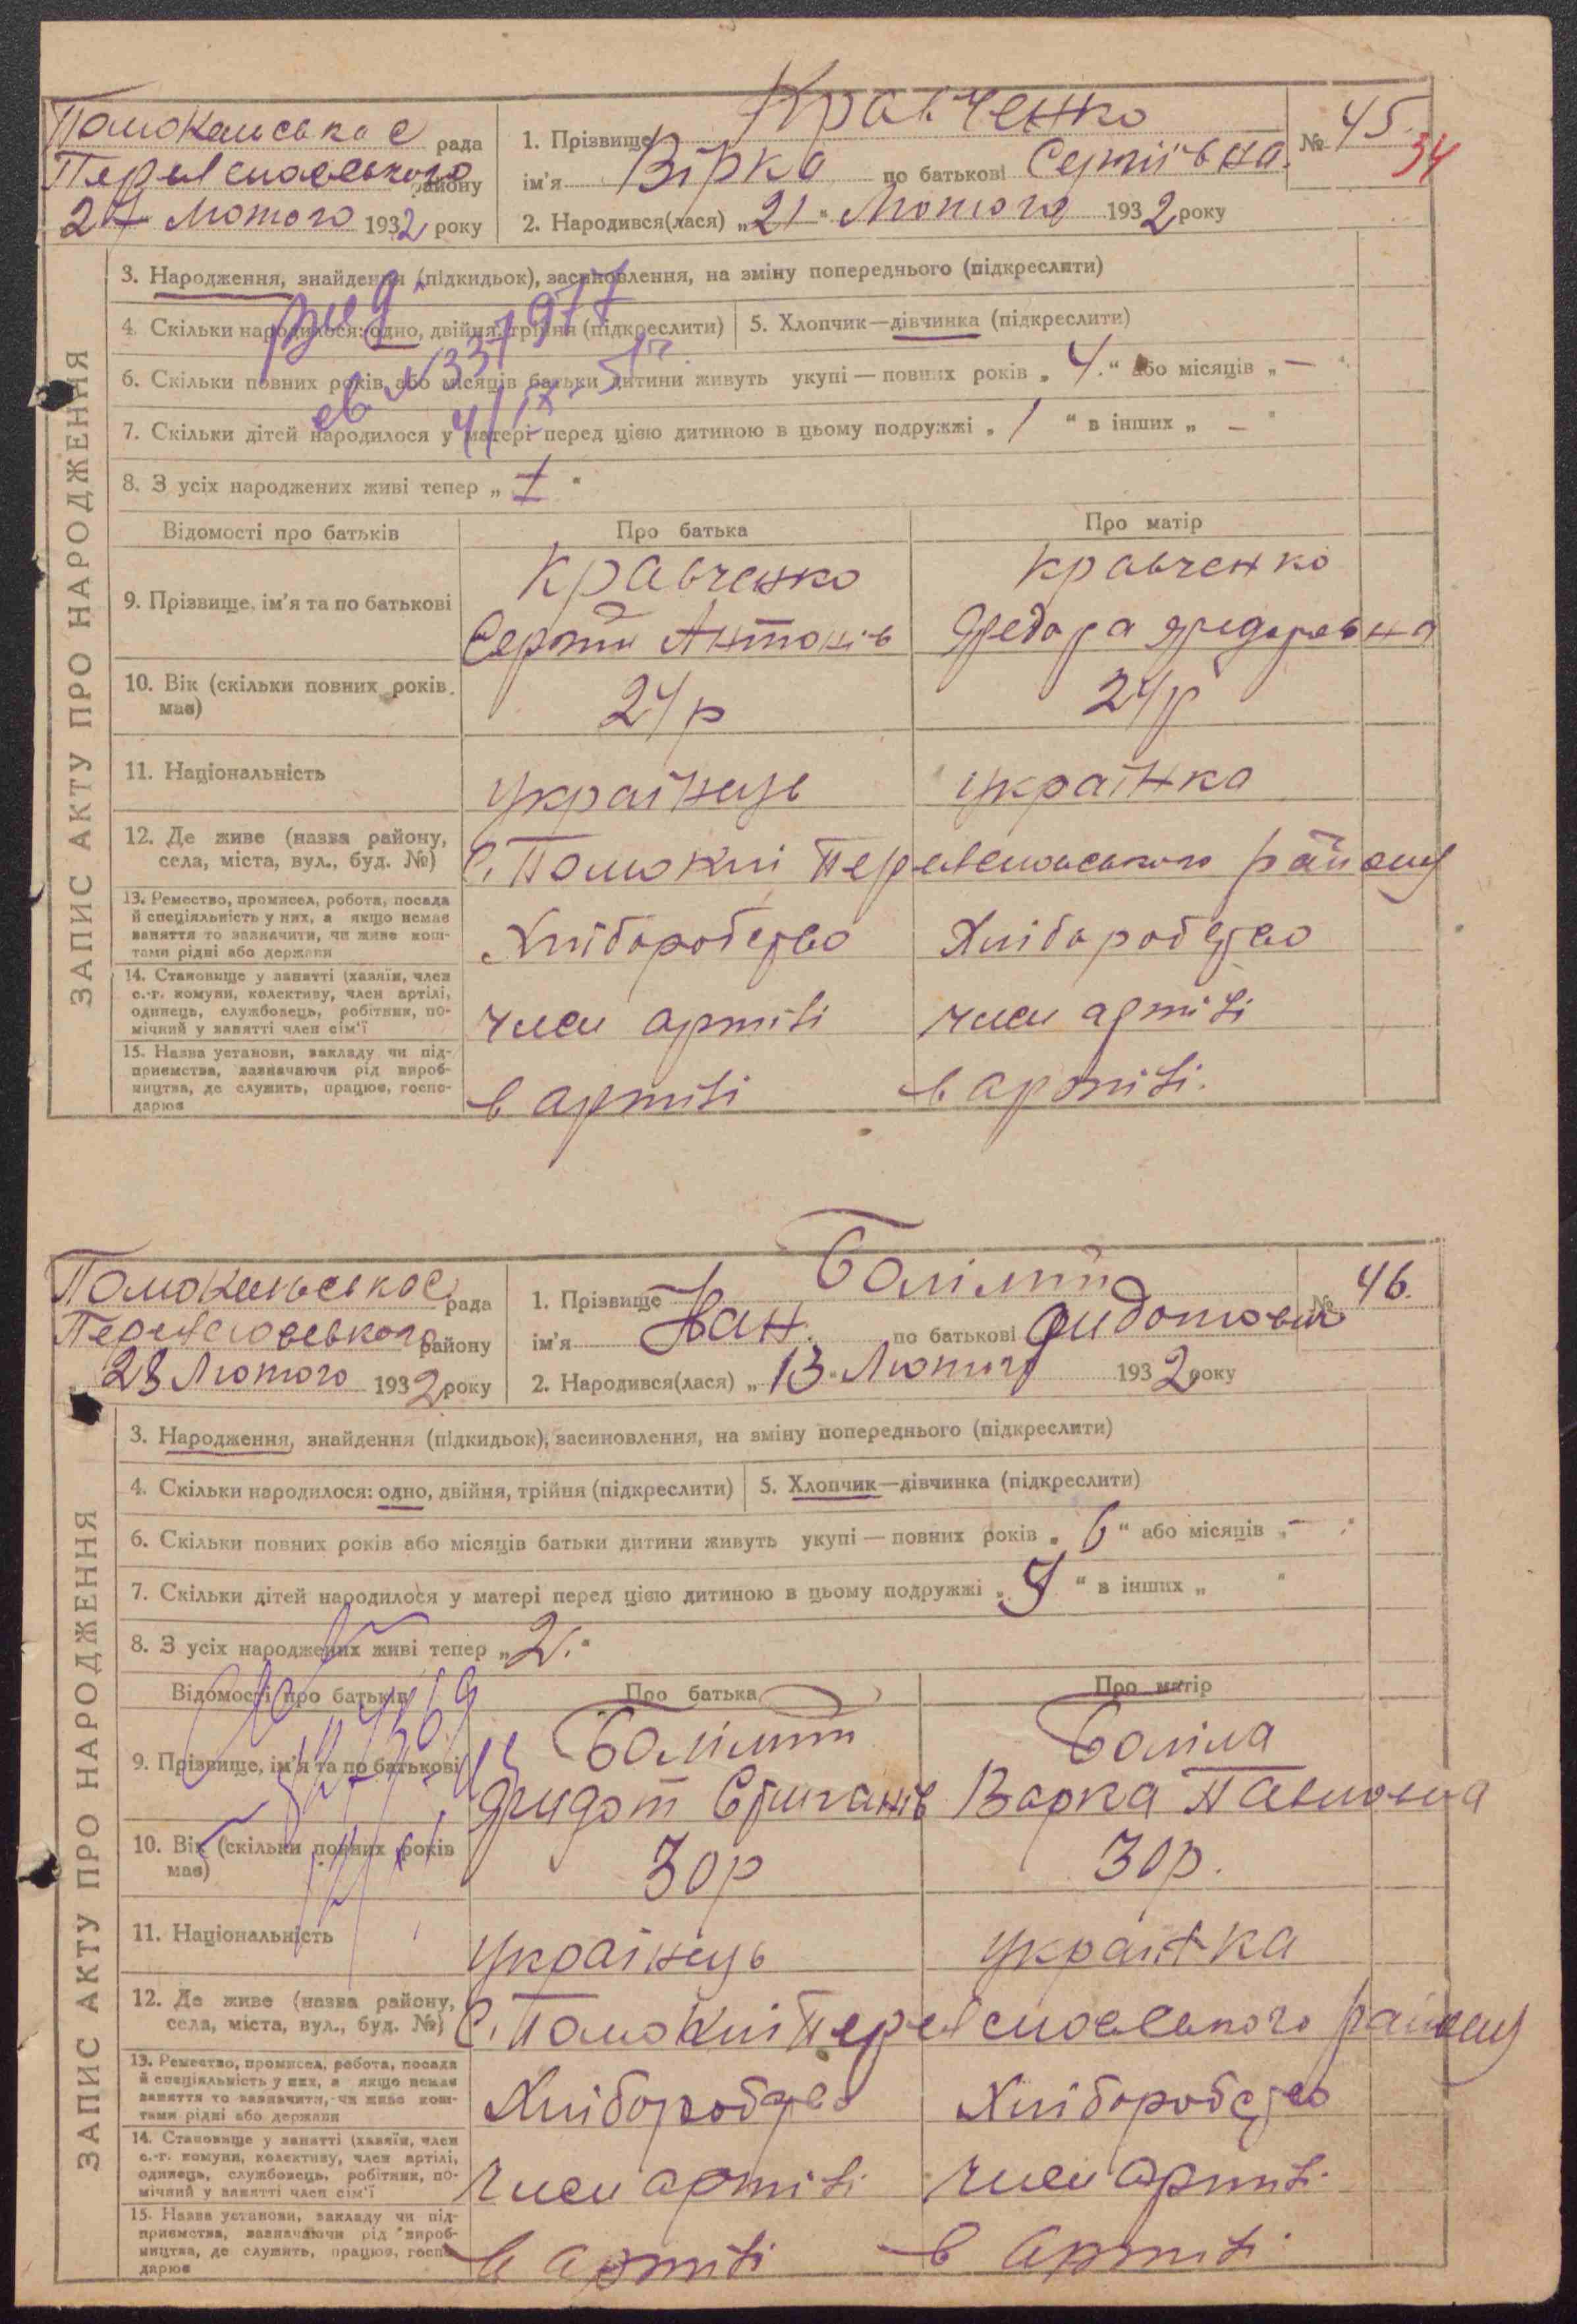 Помокельська с рада
Переяславського району
27 Лютого 1932 року
1. Прізвище Кравченко
ім'я Вірка по батькові Сергіївна
№ 45
34
2. Народився(лася) „21“ Лютого 1932 року
ЗАПИС АКТУ ПРО НАРОДЖЕННЯ
3. Народження, знайдення (підкидьок), засиновлення, на зміну попереднього (підкреслити)
4. Скільки народилося: одно, двійня, трійня (підкреслити)
5. Хлопчик—дівчинка (підкреслити)
6. Скільки повних років або місяців батьки дитини живуть укупі — повних років „4.“ або місяців „—“
7. Скільки дітей народилося у матері перед цією дитиною в цьому подружжі „1“ в інших „—“
8. З усіх народжених живі тепер „1“
Відомості про батьків
Про батька
Про матір
9. Прізвище, ім'я та по батькові
Кравченко
Сергій Антонів
Кравченко
Федора Федоровна
10. Вік (скільки повних років має)
24 р
24 р
11. Національність
українець
українка
12. Де живе (назва району, села, міста, вул., буд. №)
С. Помоклі Переяславського району
13. Ремество, промисел, робота, посада й спеціяльність у них, а якщо немає заняття то зазначити, чи живе коштами рідні або держави
Хліборобство
Хліборобство
14. Становище у занятті (хазяїн, член с.-г. комуни, колективу, член артілі, одинець, службовець, робітник, помічний у занятті член сім'ї
член артілі
член артілі
15. Назва установи, закладу чи підприємства, зазначаючи рід виробництва, де служить, працює, господарює
в артілі
в артілі.
Помокельська с рада
Переяславського району
28 Лютого 1932 року
1. Прізвище
ім'я Іван. по батькові
№ 46.
2. Народився(лася) „13“ Лютого 1932 року
ЗАПИС АКТУ ПРО НАРОДЖЕННЯ
3. Народження, знайдення (підкидьок), засиновлення, на зміну попереднього (підкреслити)
4. Скільки народилося: одно, двійня, трійня (підкреслити)
5. Хлопчик—дівчинка (підкреслити)
6. Скільки повних років або місяців батьки дитини живуть укупі — повних років „6“ або місяців „—“
7. Скільки дітей народилося у матері перед цією дитиною в цьому подружжі „ “ в інших „ “
8. З усіх народжених живі тепер „2.“
Відомості про батьків
Про батька
Про матір
9. Прізвище, ім'я та по батькові
Варка Павловна
10. Вік (скільки повних років має)
30 р
30 р.
11. Національність
українець
українка
12. Де живе (назва району, села, міста, вул., буд. №)
С. Помоклі Переяславського району
13. Ремество, промисел, робота, посада й спеціяльність у них, а якщо немає заняття то зазначити, чи живе коштами рідні або держави
Хліборобство
Хліборобство
14. Становище у занятті (хазяїн, член с.-г. комуни, колективу, член артілі, одинець, службовець, робітник, помічний у занятті член сім'ї
член артілі
член артілі
15. Назва установи, закладу чи підприємства, зазначаючи рід виробництва, де служить, працює, господарює
в артілі
в артілі